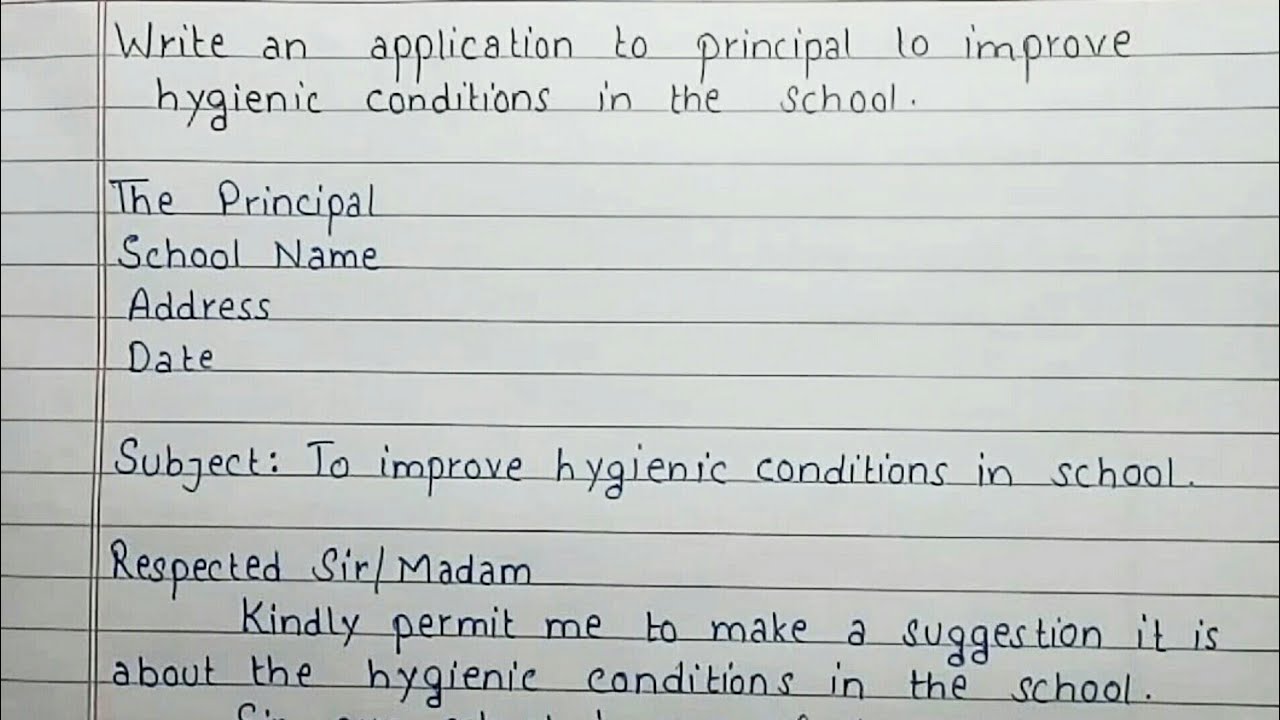 Write an application to principal to improve
hygienic conditions in the school.
The Principal
School Name
Address
Date
Subject: To improve hygienic conditions in school.
Respected Sir/Madam
Kindly permit me to make a suggestion it is
about the hygienic conditions in the school.